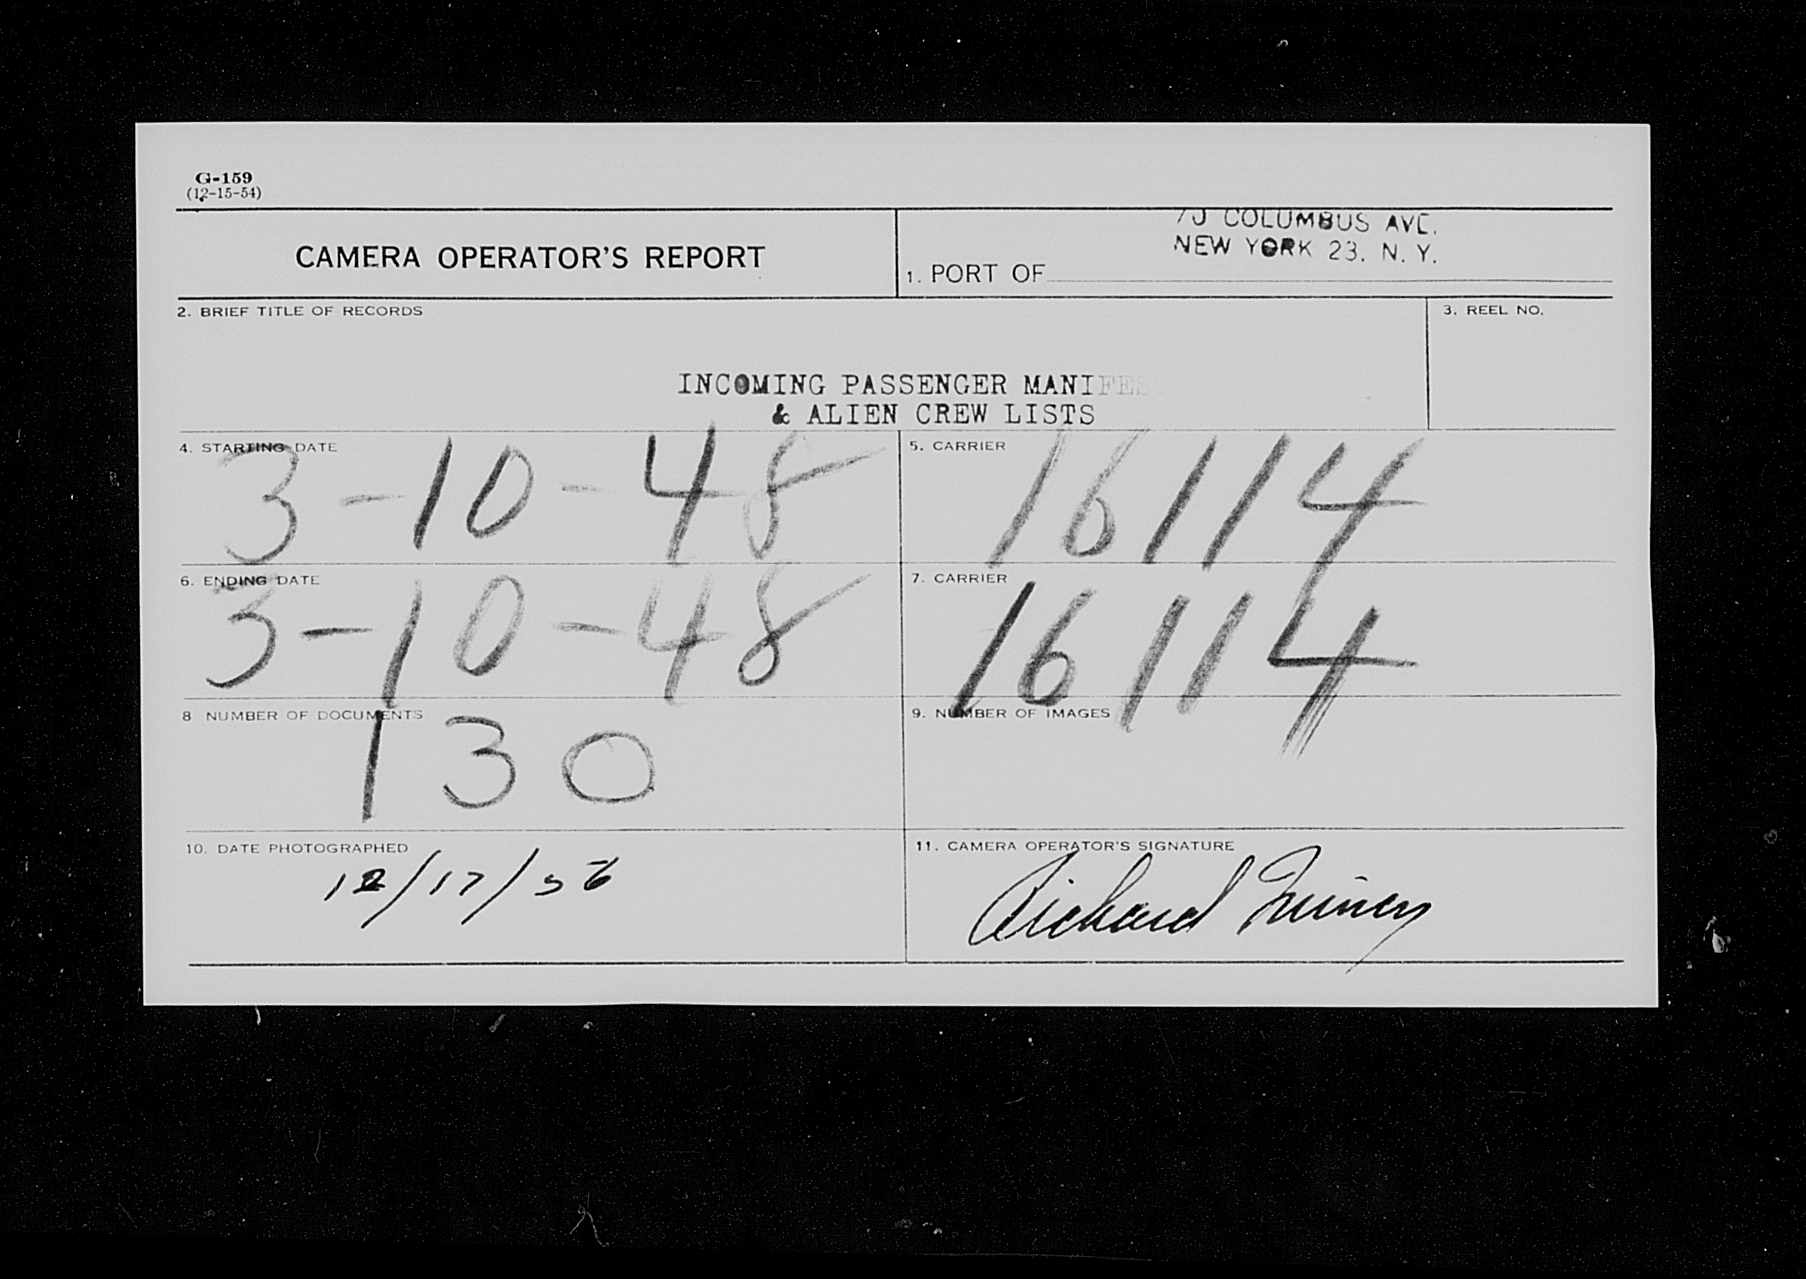 G-159
(12-15-54)
CAMERA OPERATOR'S REPORT
70 COLUMBUS AVE.
NEW YORK 23, N. Y.
1. PORT OF
2. BRIEF TITLE OF RECORDS
3. REEL NO.
INCOMING PASSENGER MANIFES
& ALIEN CREW LISTS
4. STARTING DATE
3-10-48
5. CARRIER
16114
6. ENDING DATE
3-10-48
7. CARRIER
16114
8 NUMBER OF DOCUMENTS
130
9. NUMBER OF IMAGES
10. DATE PHOTOGRAPHED
12/17/56
11. CAMERA OPERATOR'S SIGNATURE
Richard